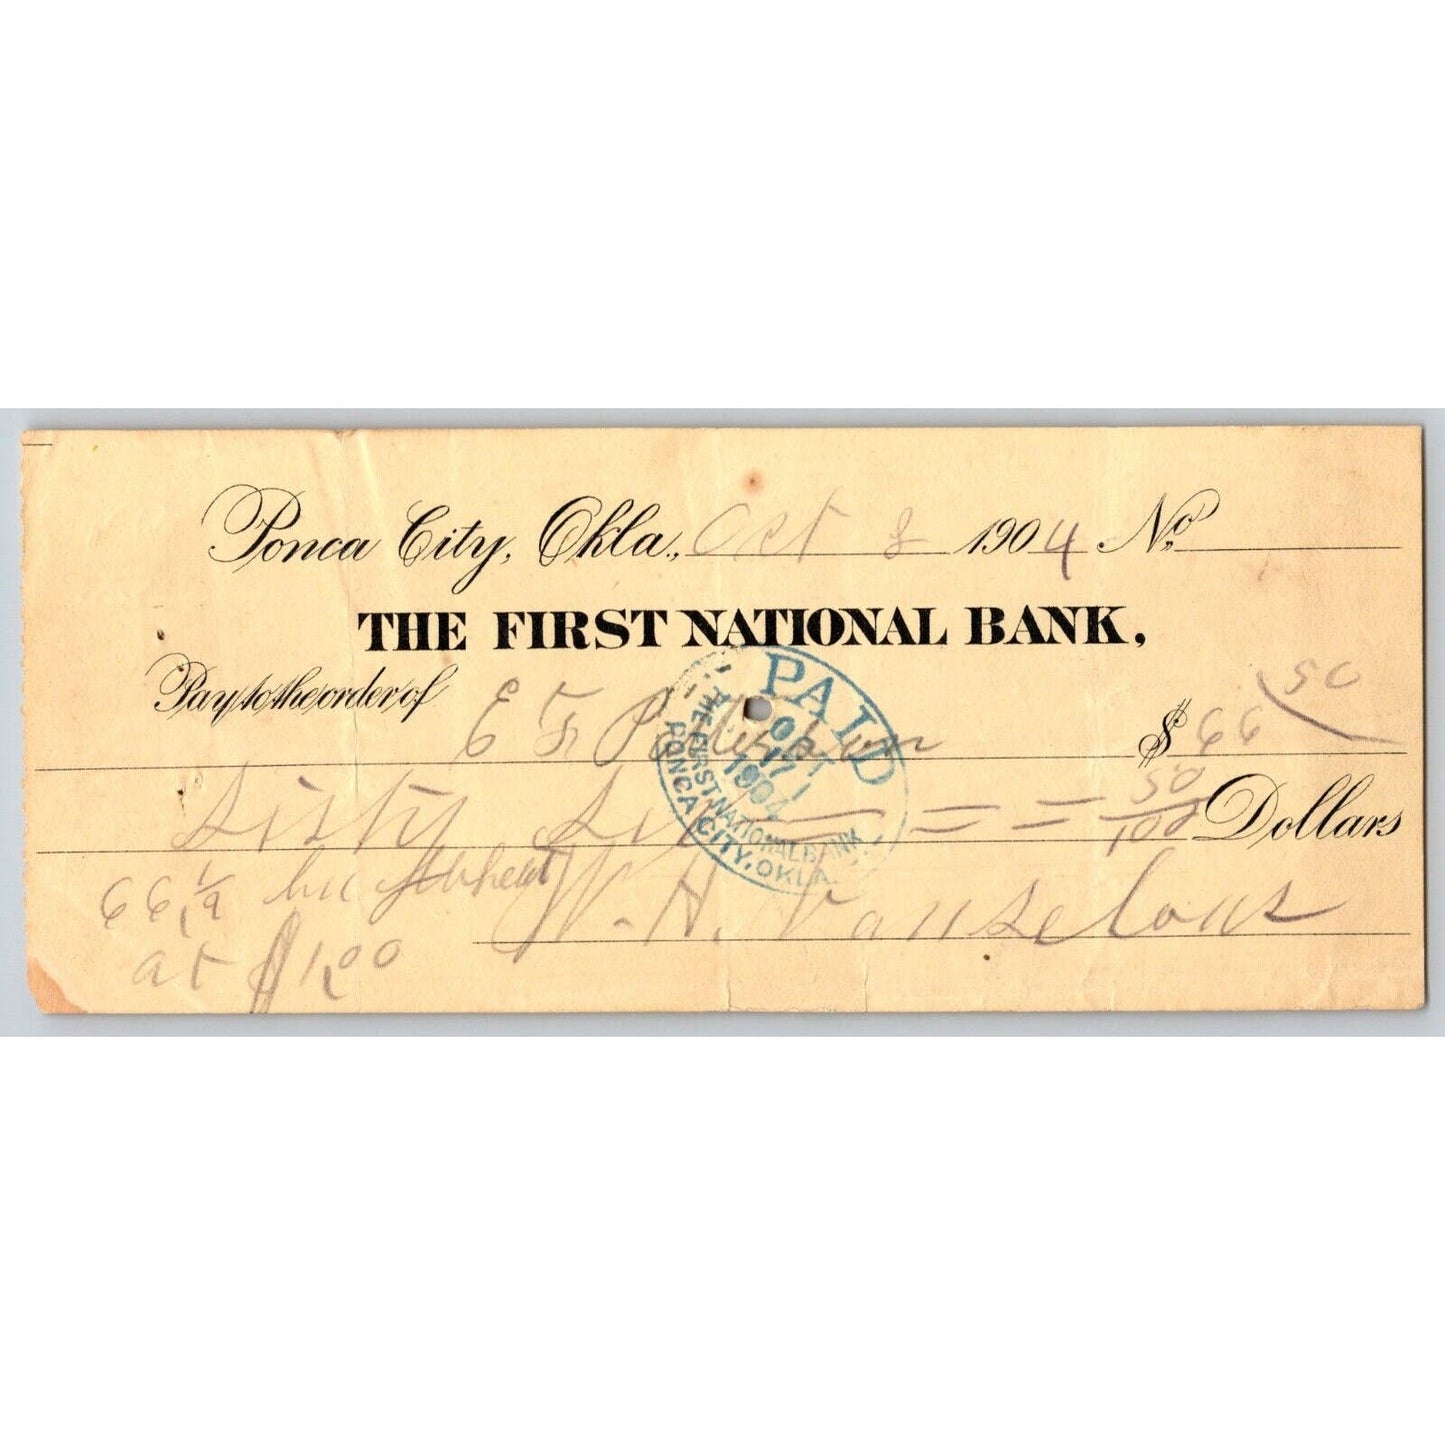 Ponca City, Okla., Oct 8 1904 No.
THE FIRST NATIONAL BANK,
Pay to the order of E F $ 66 50
Sixty Six = = = 50/100 Dollars
66 1/2 bu of wheat
at $1.00
W. H. Vanselous
PAID
OCT
17
1904
THE FIRST NATIONAL BANK
PONCA CITY, OKLA.